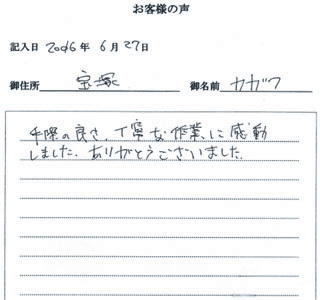 お客様の声
記入日 2016年 6月27日
御住所 宝塚 御名前 ナガワ
手際の良さ、丁寧な作業に感動
しました。ありがとうございました。